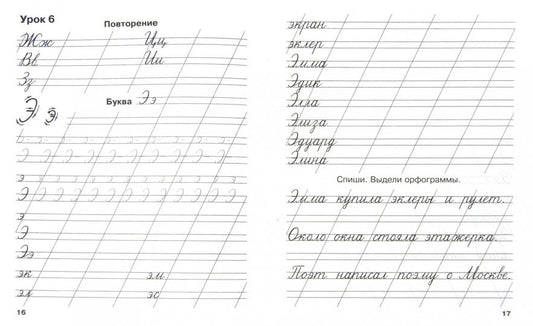 Урок 6
Повторение
Жж Цц
Вв Ии
Зз
Э э
Буква Ээ
Э Э Э Э Э Э Э Э Э Э Э
Э Э Э Э Э Э Э Э Э Э Э
э э э э э э э э э э э
Э Э Э Э Э Э Э Э Э Э Э
э
Э
Э
Ээ
эк эм
эл эо
16
экран
эклер
Эмма
Эдик
Элла
Элиза
Эдуард
Элина
Спиши. Выдели орфограммы.
Эмма купила эклеры и рулет.
Около окна стояла этажерка.
Поэт написал поэму о Москве.
17